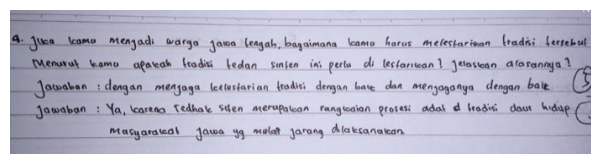 4. Jika kamu menjadi warga jawa tengah, bagaimana kamu harus melestarikan tradisi tersebut
Menurut kamu apakah tradisi tedan sinten ini perlu di lestarikan? jelaskan alasannya?
Jawaban : dengan menjaga kelestarian tradisi dengan baik dan menjaganya dengan baik
Jawaban : Ya, karena tedhak siten merupakan rangkaian prosesi adat d tradisi daur hidup
Masyarakat Jawa yg mulai jarang dilaksanakan